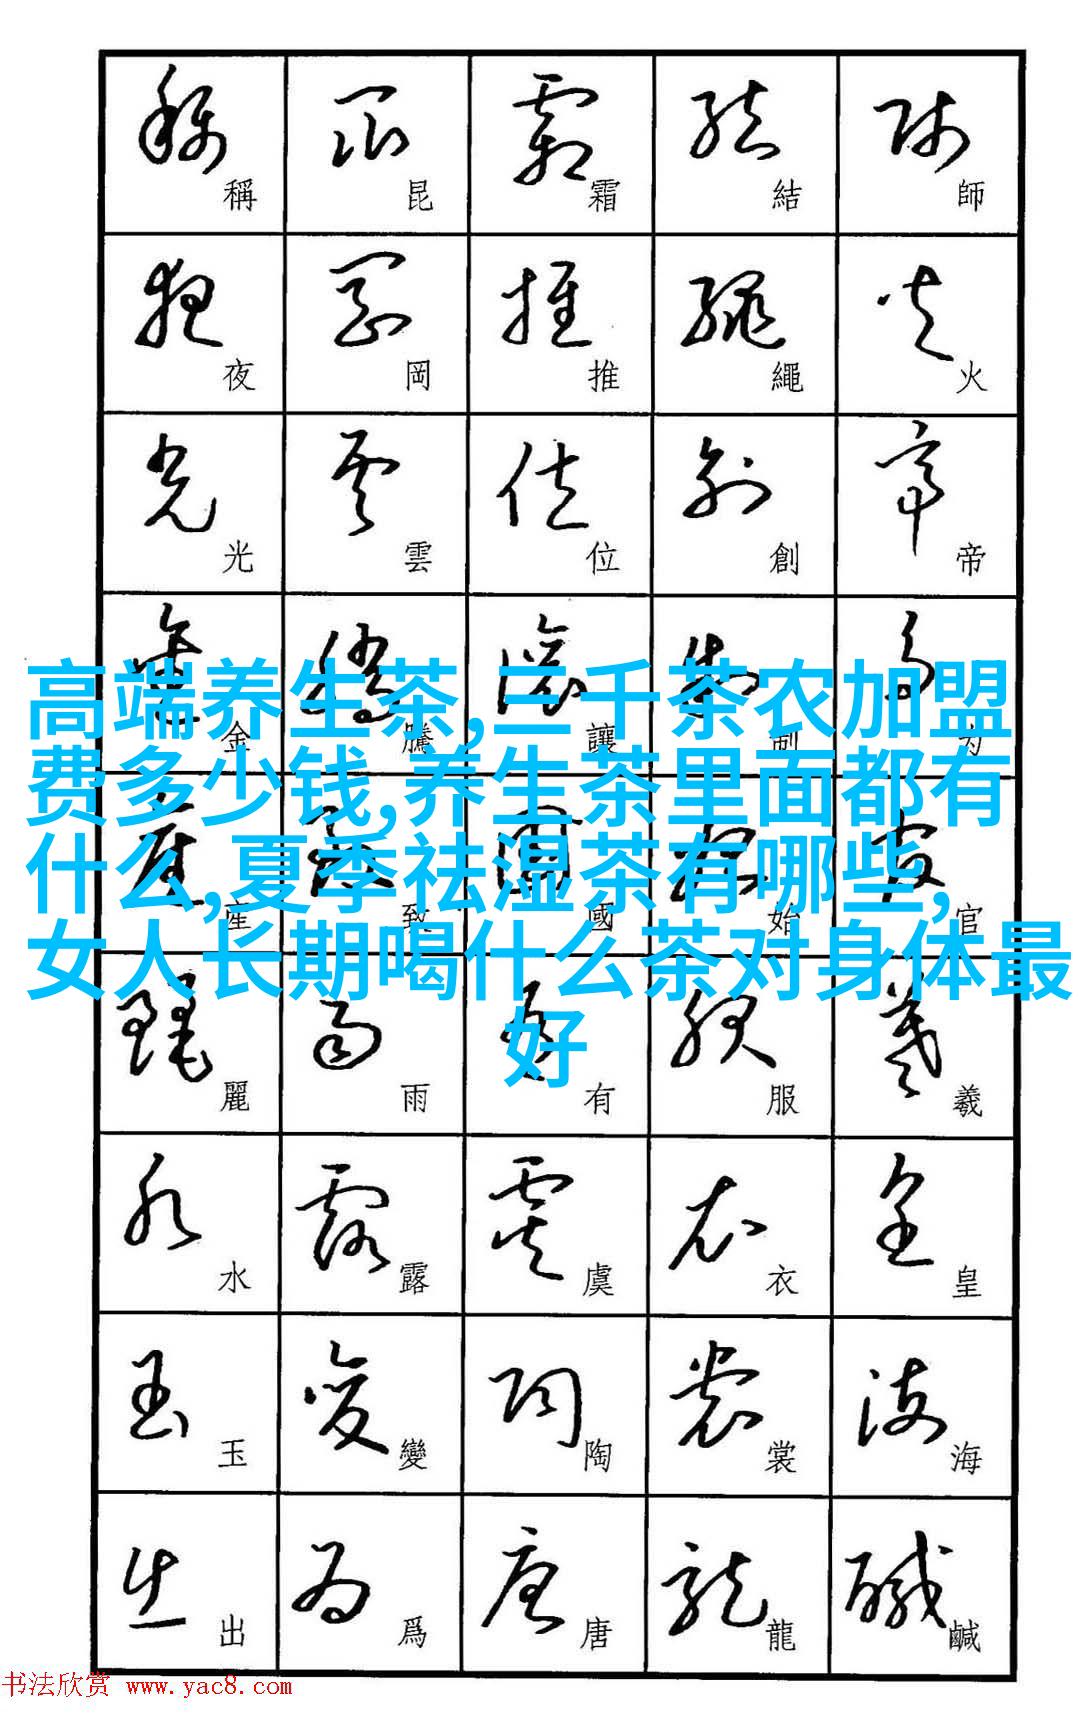 稱 昆 霜 結 師
夜 岡 推 繩 火
光 雲 位 創 帝
金 騰 讓 制 为
産 致 國 始 官
麗 雨 有 服 羲
水 露 虞 衣 皇
玉 變 陶 裳 海
出 爲 唐 龍 鹹
高端养生茶,三千茶农加盟
费多少钱,养生茶里面都有
什么,夏季祛湿茶有哪些,
女人长期喝什么茶对身体最
好
书法欣赏 www.yac8.com